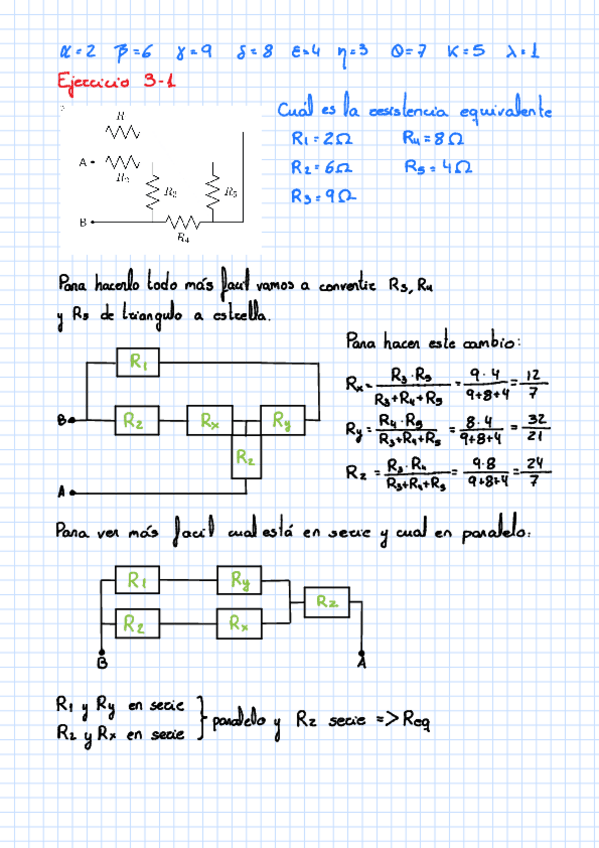 α=2 β=6 γ=9 δ=8 ε=4 η=3 θ=7 K=5 λ=1
Ejercicio 3-1
Cuál es la resistencia equivalente
R1=2Ω R4=8Ω
R2=6Ω R5=4Ω
R3=9Ω
R
A
R2
R5
B
R4
Para hacerlo todo más facil vamos a convertir R3, R4
y R5 de triangulo a estrella.
Para hacer este cambio:
R1
B R2 Rx Ry
Rz
A
Rx = R3·R5/R3+R4+R5 = 9·4/9+8+4 = 12/7
Ry = R4·R5/R3+R4+R5 = 8·4/9+8+4 = 32/21
Rz = R3·R4/R3+R4+R5 = 9·8/9+8+4 = 24/7
Para ver más facil cual está en serie y cual en paralelo:
R1 Ry
Rz
R2 Rx
B A
R1 y Ry en serie
R2 y Rx en serie
} paralelo y Rz serie => Req